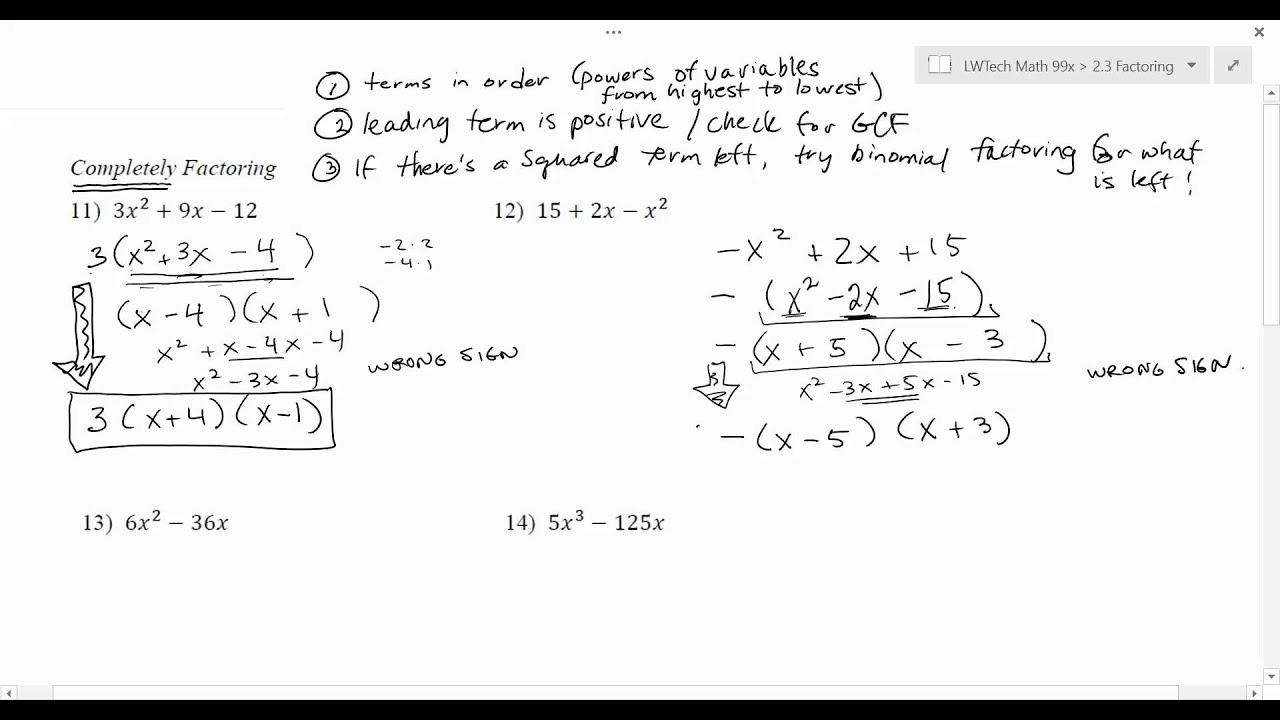 LWTech Math 99x > 2.3 Factoring
① terms in order (powers of variables
from highest to lowest)
② leading term is positive / check for GCF
③ If there's a squared term left, try binomial factoring for what
is left!
Completely Factoring
11) 3x² + 9x − 12
3(x² + 3x − 4)
−2·2
−4·1
(x − 4)(x + 1)
x² + x − 4x − 4
x² − 3x − 4
WRONG SIGN
3(x+4)(x−1)
12) 15 + 2x − x²
−x² + 2x + 15
−(x² − 2x − 15)
−(x + 5)(x − 3)
x² − 3x + 5x − 15
WRONG SIGN.
−(x − 5)(x + 3)
13) 6x² − 36x
14) 5x³ − 125x